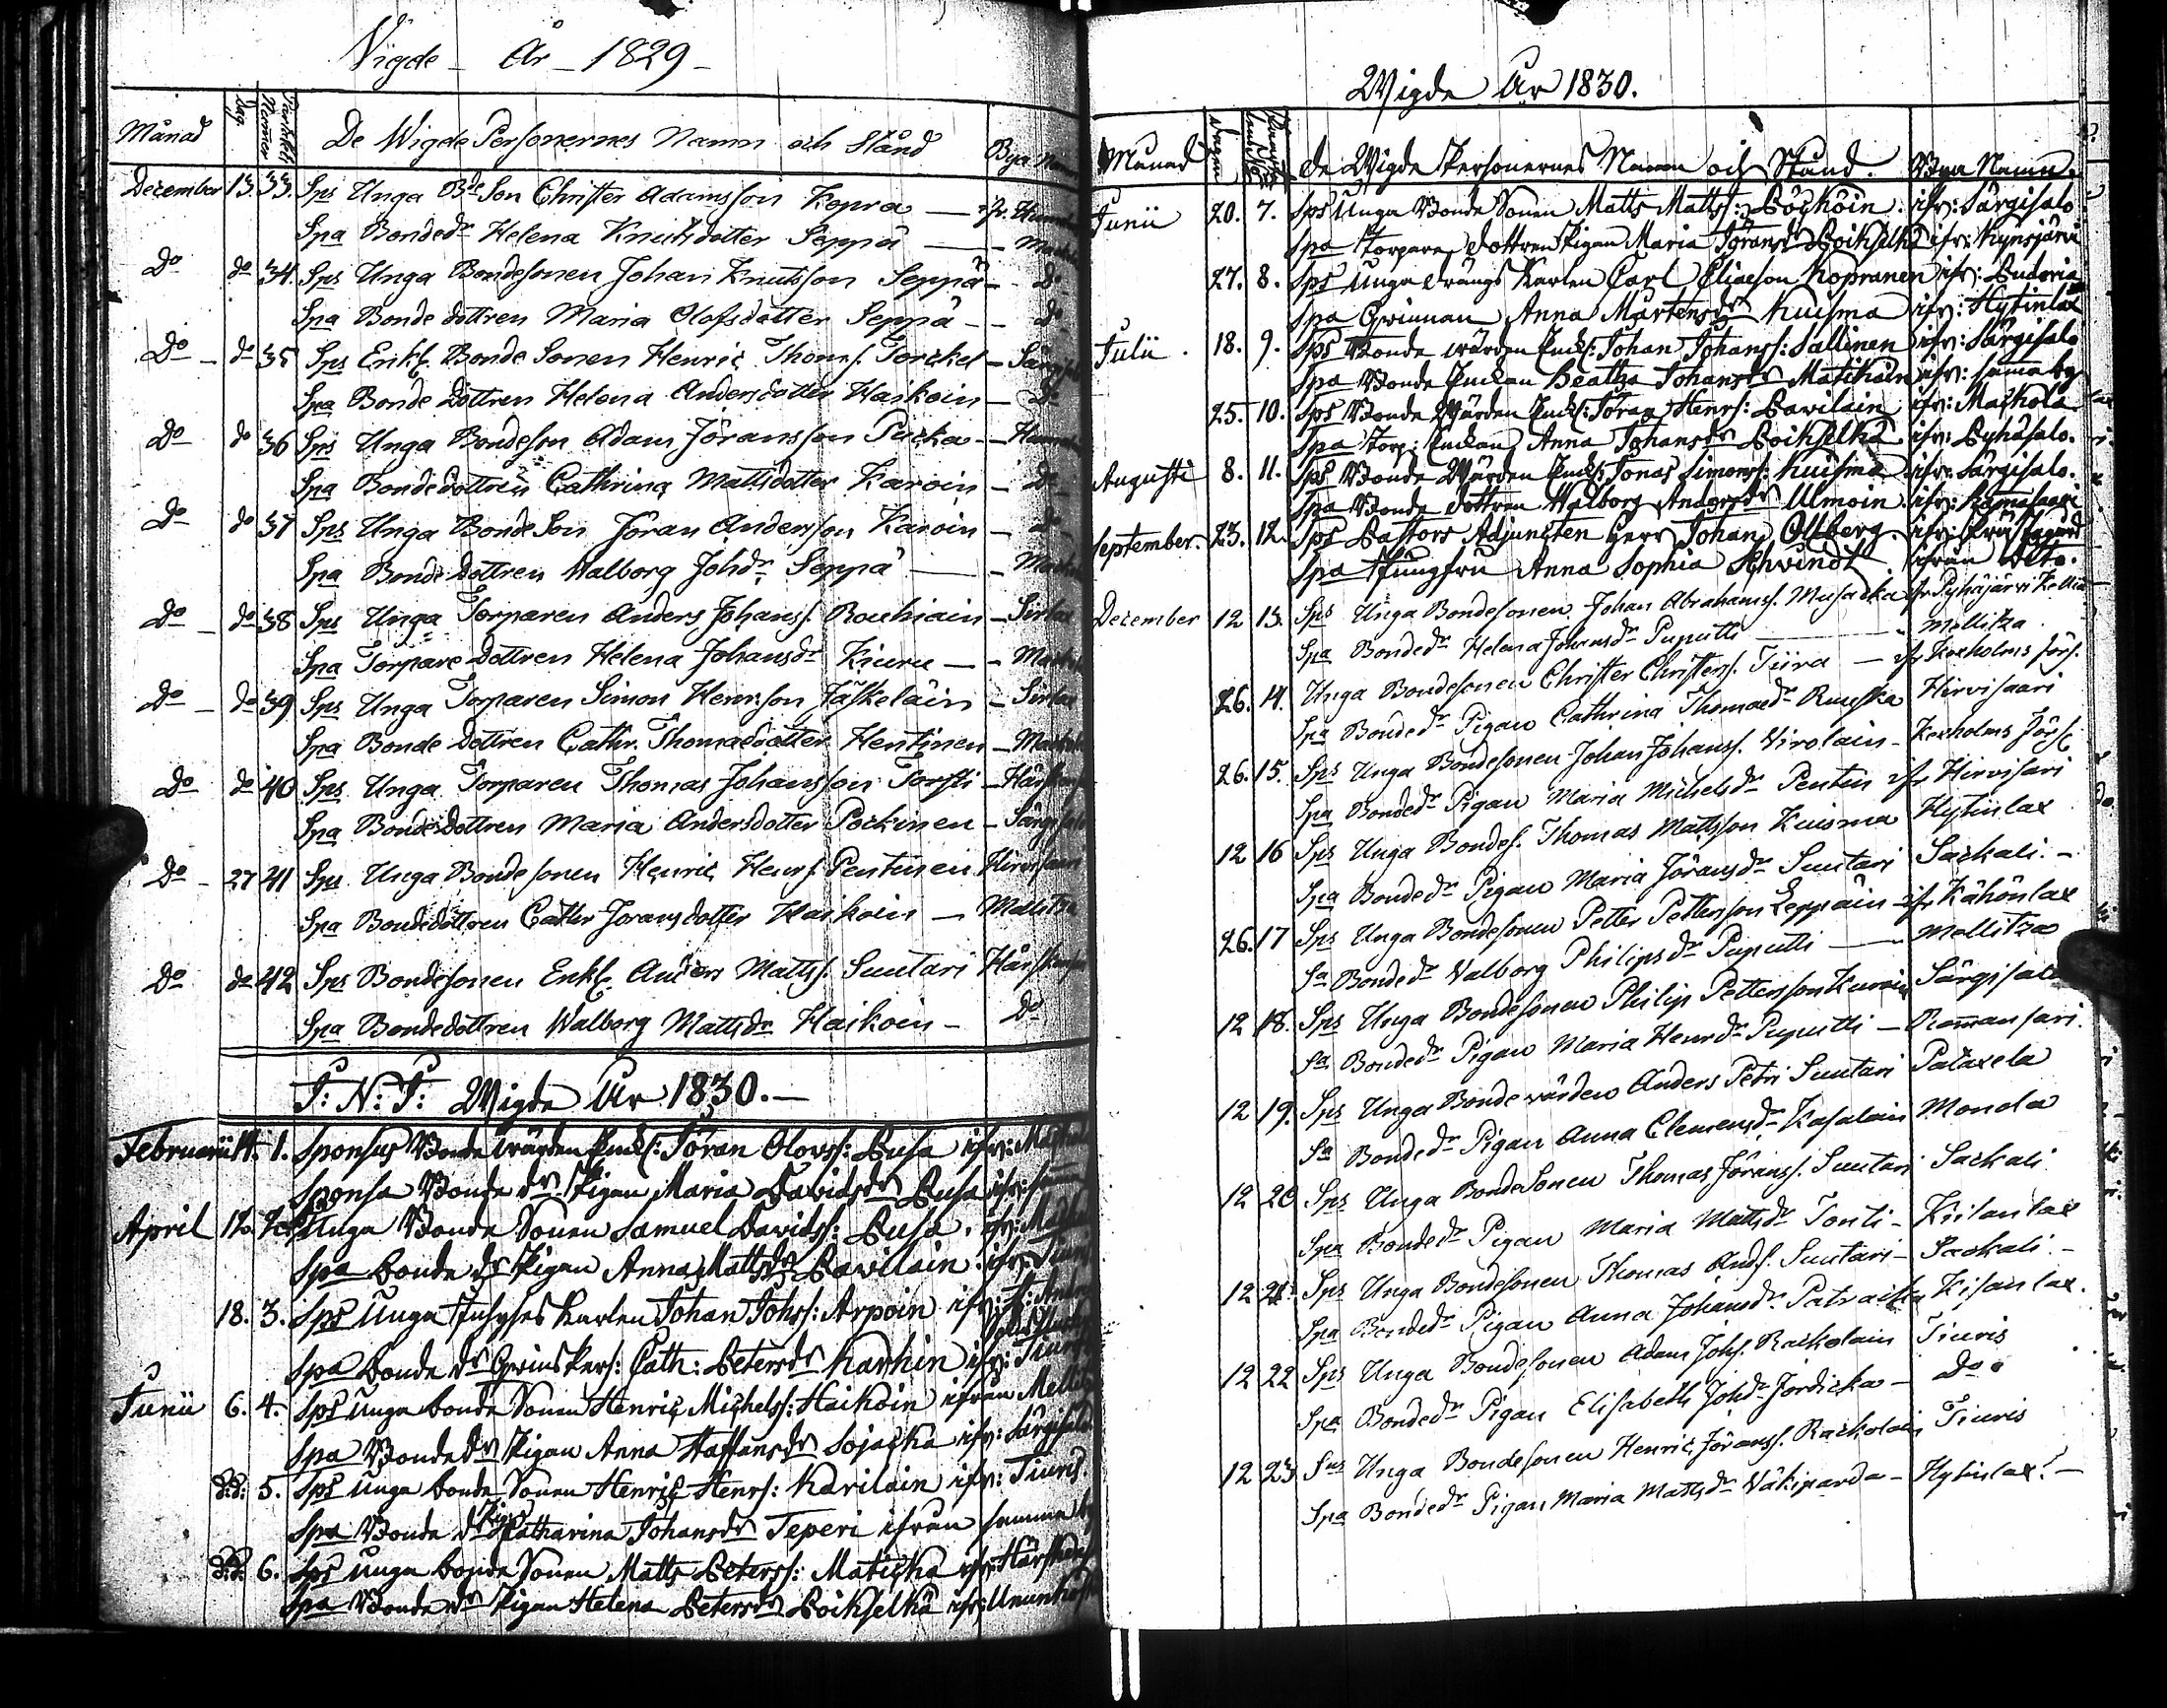 Vigde - År - 1829 -
Månad Dag Parkels Numer De Wigde Personernes Namn och Stånd Bya
December 13. 33. Sps Unga Bde Son Christer Adamsson Kopra — ifr.
Spa Bondedr Helena Knutsdotter Seppä —
Do do 34. Sps Unga Bondesonen Johan Knutsson Seppä - Do
Spa Bonde dottren Maria Olofsdotter Seppä - Do
Do - do 35 Sps Enkl. Bonde Sonen Henric Thoms. Torckel -
Spa Bonde Dottren Helena Andersdotter Haikoin - Do
Do do 36 Sps Unga Bondeson Adam Jöransson Pucka -
Spa Bondedottren Cathrina Mattsdotter Karoin - Do
Do do 37 Sps Unga Bonde Son Jöran Andersson Karoin - Do
Spa Bonde Dottren Walborg Johdr Seppä —
Do - do 38 Sps Unga Torparen Anders Johanss. Rouhiain -
Spa Torpare Dottren Helena Johansdr Kiuru —
Do - do 39 Sps Unga Torparen Simon Henrson Jäskeläin -
Spa Bonde Dottren Cathr. Thomasdotter Hentinen -
Do do 40 Sps Unga Torparen Thomas Johansson Torfti -
Spa Bondedottren Maria Andersdotter Pockinen -
Do - 27 41 Sps Unga Bonde sonen Henric Henrs. Pentinen Hirvisaari
Spa Bondedottren Cathr Joransdotter Haikoin — Mellitza
Do do 42 Sps Bondesonen Enkl. Anders Matts. Suutari
Spa Bondedottren Walborg Mattsdr Haikoin - Do
J: N: J: Wigde År 1830. —
Februarii 14. 1. Sponsus Bonde wärden Enkl: Jöran Olovss: Pusa ifr:
Sponsa Bonde dr Pigan Maria Davidsdr Pusa ifr:
April 12. 2. Sps Unga Bonde Sonen Samuel Davidss: Pusa. ifr:
Spa bonde dr Pigan Anna Mattsdr Pavilain. ifr:
18. 3. Sps Unga Karlen Johan Johss: Arpoin ifr:
Spa bonde dr Qwinspers: Cath: Petersdr Karhin ifr:
Junii 6. 4. Sps Unga bonde Sonen Henric Michelss: Haikoin ifrån
Spa Bonde dr Pigan Anna Staffansdr Sojacka ifr:
d:d: 5. Sps Unga bonde Sonen Henric Henrs: Karilain ifr: Tiuris.
Spa Bonde dr Pig: Catharina Johansdr Teperi ifrån samma by
d:d: 6. Sps Unga bonde Sonen Matts Peterss: Maticka ifr:
Spa Bonde dr Pigan Helena Petersdr Poikselkä ifr:
Wigde År 1830.
Månad Dagen De Wigde Personernes Namn och Stånd. Bya Namn.
Junii 20. 7. Sps Unga Bonde Sonen Matts Mattss: Pöchöin. ifr: Särgisalo
Spa Torpare dottren Pigan Maria Jöransdr Poikselkä ifr: Kynsjärvi
27. 8. Sps Unga drängs Karlen Carl Eliaeson Kopranen ifr:
Spa Qwinnan Anna Mårtensdr Kuisma ifr: Hytinlax
Julii. 18. 9. Sps Bonde wärden Enkl: Johan Johanss: Sallinen ifr: Särgisalo
Spa Bonde Enkan Beattza Johansdr Matikain ifr: samma by
25. 10. Sps Bonde Wärden Enkl: Jöran Henrs: Pavilain ifr: Mackola
Spa Torp: Enkan Anna Johansdr Poikselkä ifr: Pyhäsalo.
Augusti 8. 11. Sps Bonde Wärden Enkl: Jonas Simonss: Kuisma ifr: Särgisalo.
Spa Bonde dottren Walborg Andersdr Ulmoin ifr:
September. 23. 12. Sps Pastors Adjuncten Herr Johan Olsberg. ifr:
Spa Jungfru Anna Sophia Schvindt ifrån dito.
December 12 13. Sps Unga Bondesonen Johan Abrahams. Musacka fr Pyhäjärvi
Spa Bondedr Helena Johansdr Puputti — Mellitza
26. 14. Unga Bondesonen Christer Christers. Tiira — ifr Kexholms förs.
Spa Bondedr Pigan Cathrina Thomaedr Ruuska Hirvisaari
26. 15. Sps Unga Bondesonen Johan Johanss. Virolain - Kexholms Förs.
Spa Bondedr Pigan Maria Michelsdr Pentin ifr Hirvisari
12 16 Sps Unga Bondes. Thomas Mattsson Kuisma Hytinlax
Spa Bondedr Pigan Maria Jöransdr Suutari Sackali. -
26. 17 Sps Unga Bondesonen Petter Petterson Leppäin ifr Kähönlax
Sa Bondedr Valborg Philipsdr Puputti — Mellitza
12 18. Sps Unga Bondesonen Philip Pettersson Särgisalo
Sa Bondedr Pigan Maria Henrdr Puputti — Rammansari.
12 19. Sps Unga Bonde värden Anders Petri Suutari Pataxela
Sa Bondedr Pigan Anna Clemensdr Kasalain Monola
12 20 Sps Unga BondeSonen Thomas Jöranss. Suutari Sackali
Spa Bondedr Pigan Maria Mattsdr Tonti - Kiilanlax
12 21. Sps Unga Bondesonen Thomas Ands. Suutari - Sackali. -
Spa Bondedr Pigan Anna Johansdr Patraicka Kisanlax.
12 22 Sps Unga Bondesonen Adam Johs. Rackolain Tiuris
Spa Bondedr Pigan Elisabeth Johdr Jördicka - Do
12 23 Sps Unga Bondesonen Henric Jöranss. Rackolain Tiuris
Spa Bondedr Pigan Maria Mattsdr Väkiparda - Hytinlax. —